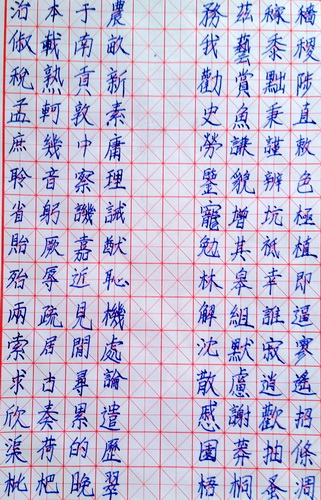 治本于農 務茲稼穡
俶載南畝 我藝黍稷
稅熟貢新 勸賞黜陟
孟軻敦素 史魚秉直
庶幾中庸 勞謙謹敕
聆音察理 鑒貌辨色
省躬譏誡 寵增抗極
貽厥嘉猷 勉其祗植
殆辱近恥 林皋幸即
兩疏見機 解組誰逼
索居閒處 沈默寂寥
求古尋論 散慮逍遙
欣奏累遣 慼謝歡招
渠荷的歷 園莽抽條
枇杷晚翠 梧桐蚤凋